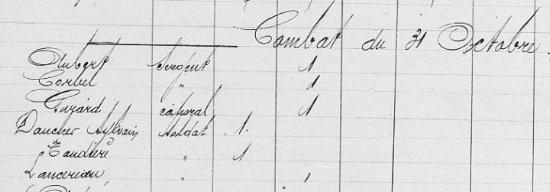 Combat du 31 Octobre.
Aubert Sergent 1
Corbel " 1
Gazard caporal 1
Daucher Sylvain soldat 1.
" 1
Lancereau " 1